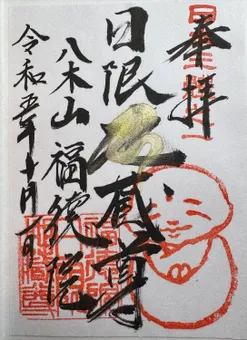 奉拝
日限地蔵尊
八木山福徳院
令和五年十月